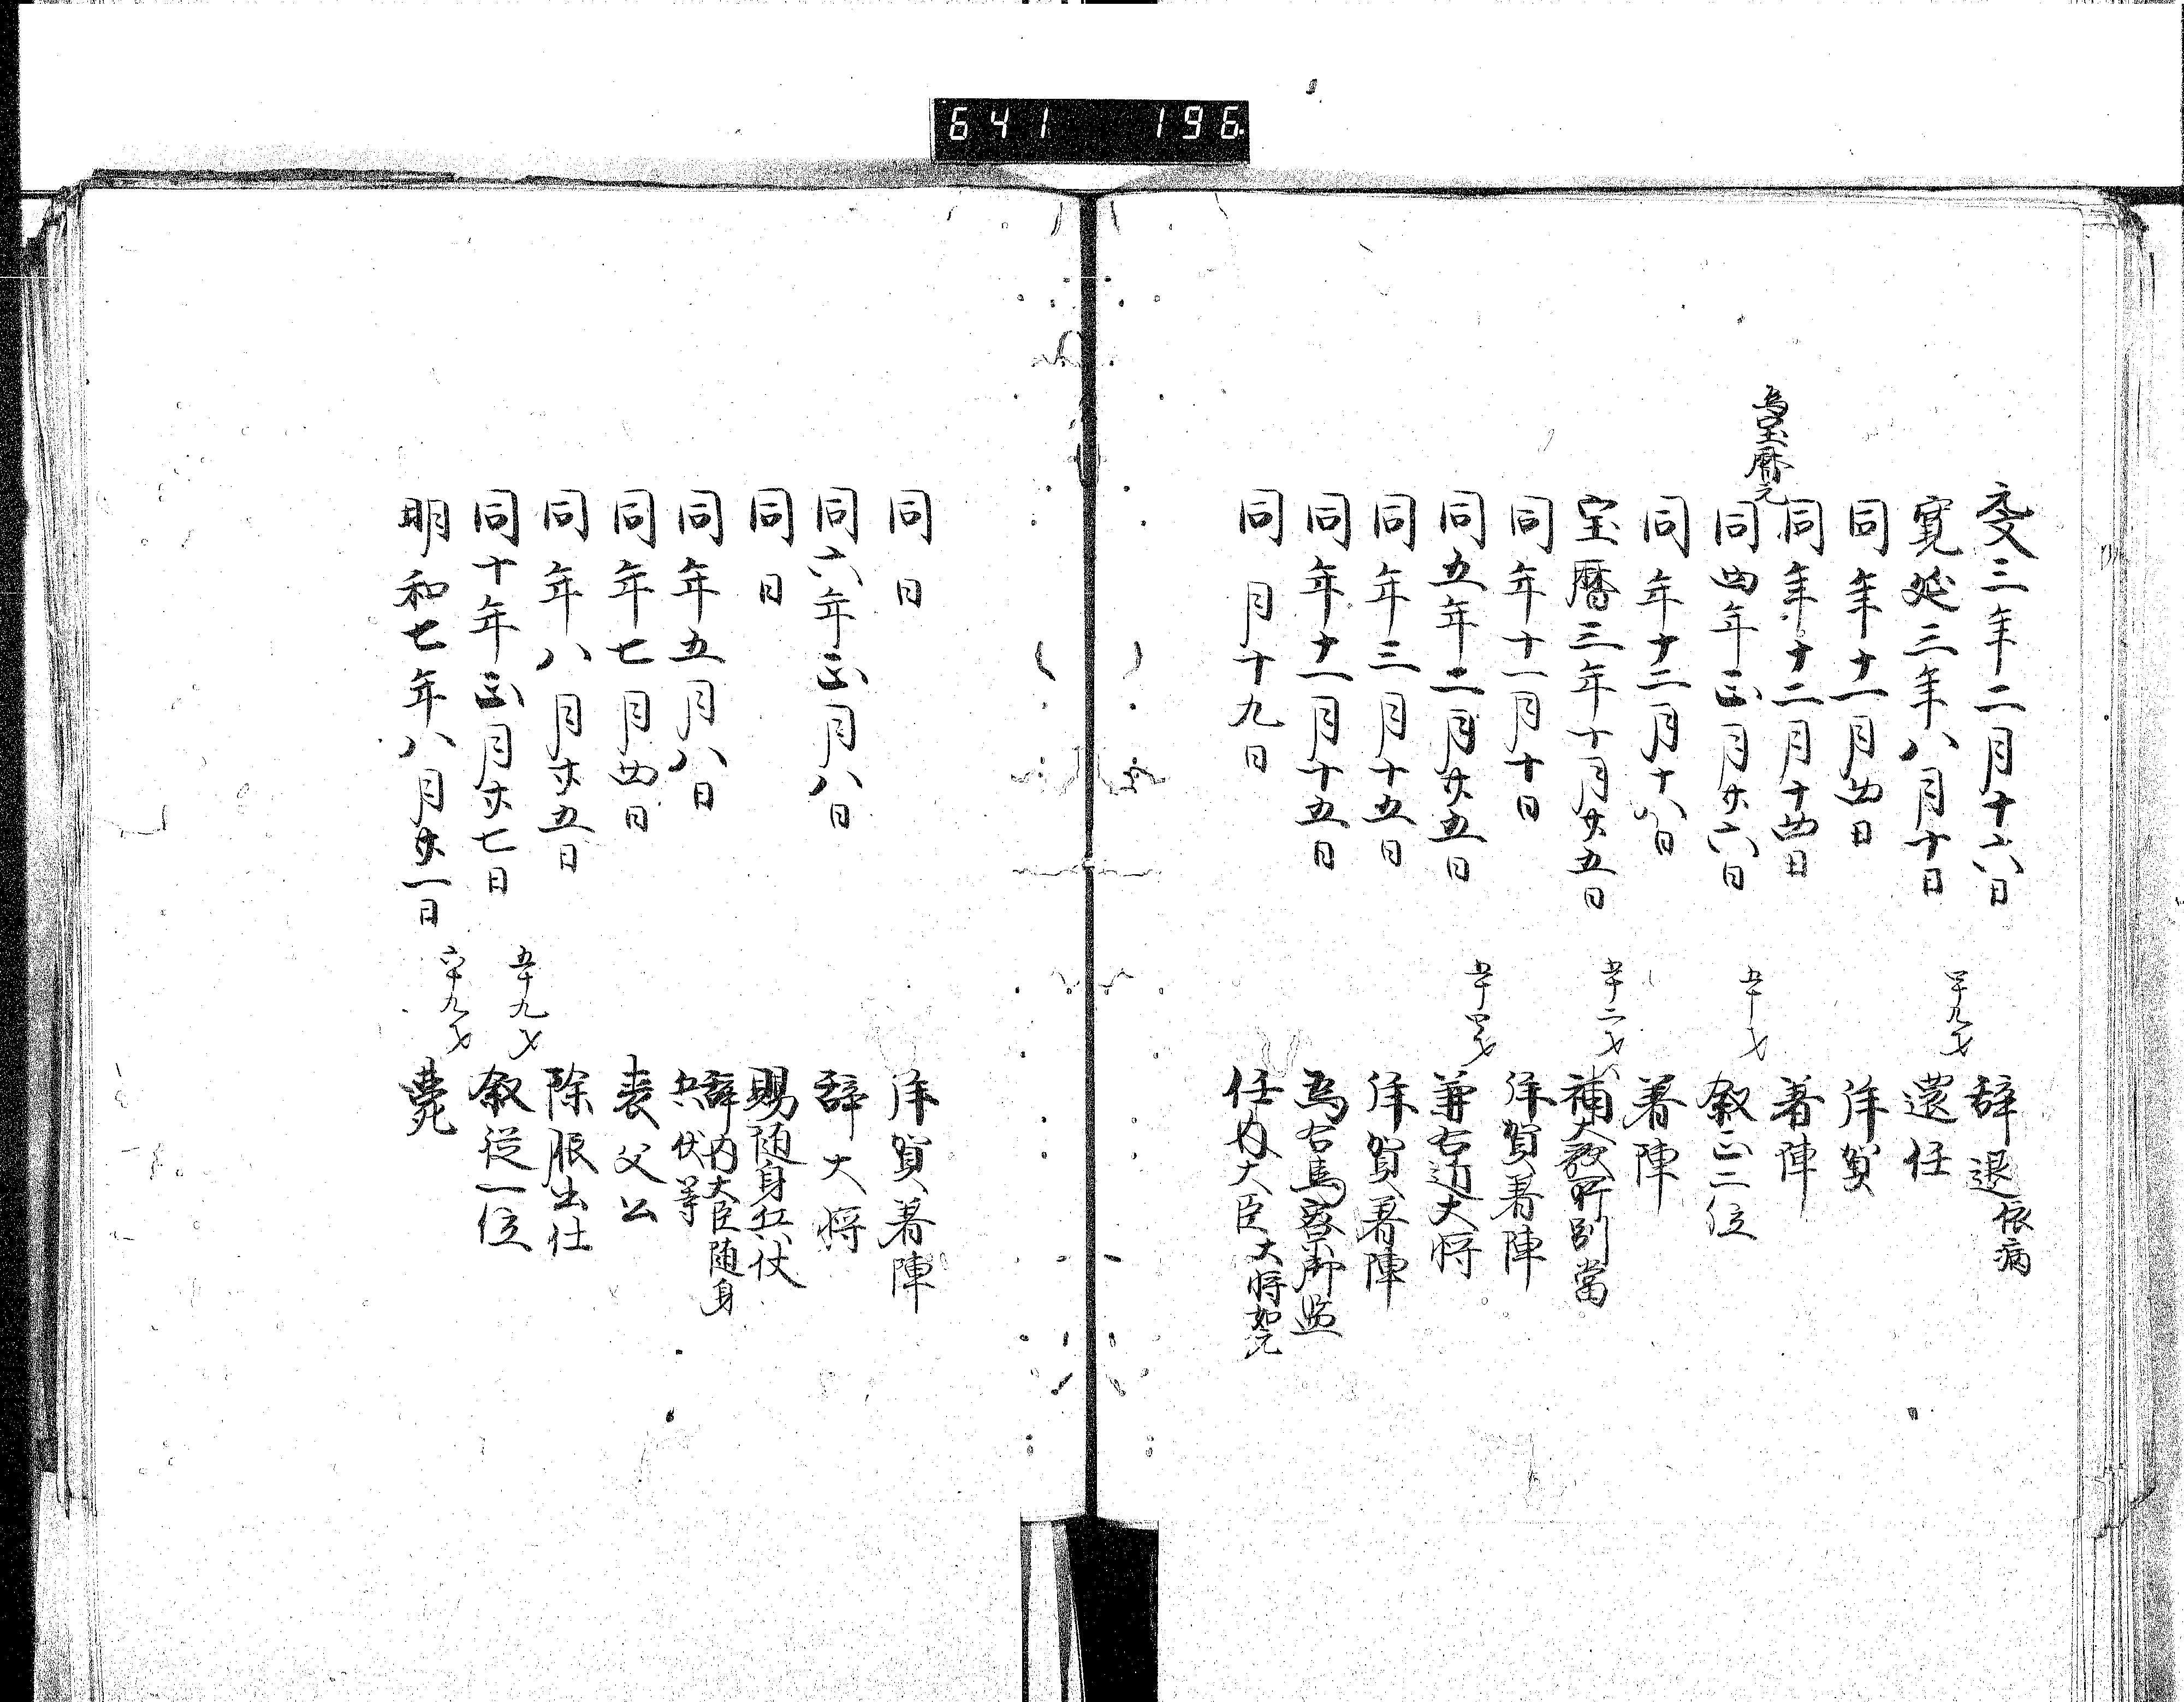 641 196
三年二月十六日 辞退依病
寛延三年八月十日 四十九才 還任
同年十一月四日 拝賀
同年十二月十四日 著陣
為宝暦元
同四年正月廿六日 五十才 叙正二位
同年十二月十八日 着陣
宝暦三年十月廿五日 五十二才 補大歌所別當
同年十一月十日 拝賀着陣
同五年二月廿五日 五十四才 兼右近大将
同年三月十五日 拝賀着陣
同年十一月十五日 為右馬寮御監
同月十九日 任内大臣大将如元
同日 拝賀着陣
同六年正月八日 辞大将
同日 賜随身兵仗
同年五月八日 辞内大臣随身兵仗等
同年七月四日 喪父公
同年八月廿五日 除服出仕
同十年正月廿七日 五十九才 叙従一位
明和七年八月廿一日 六十九才 薨